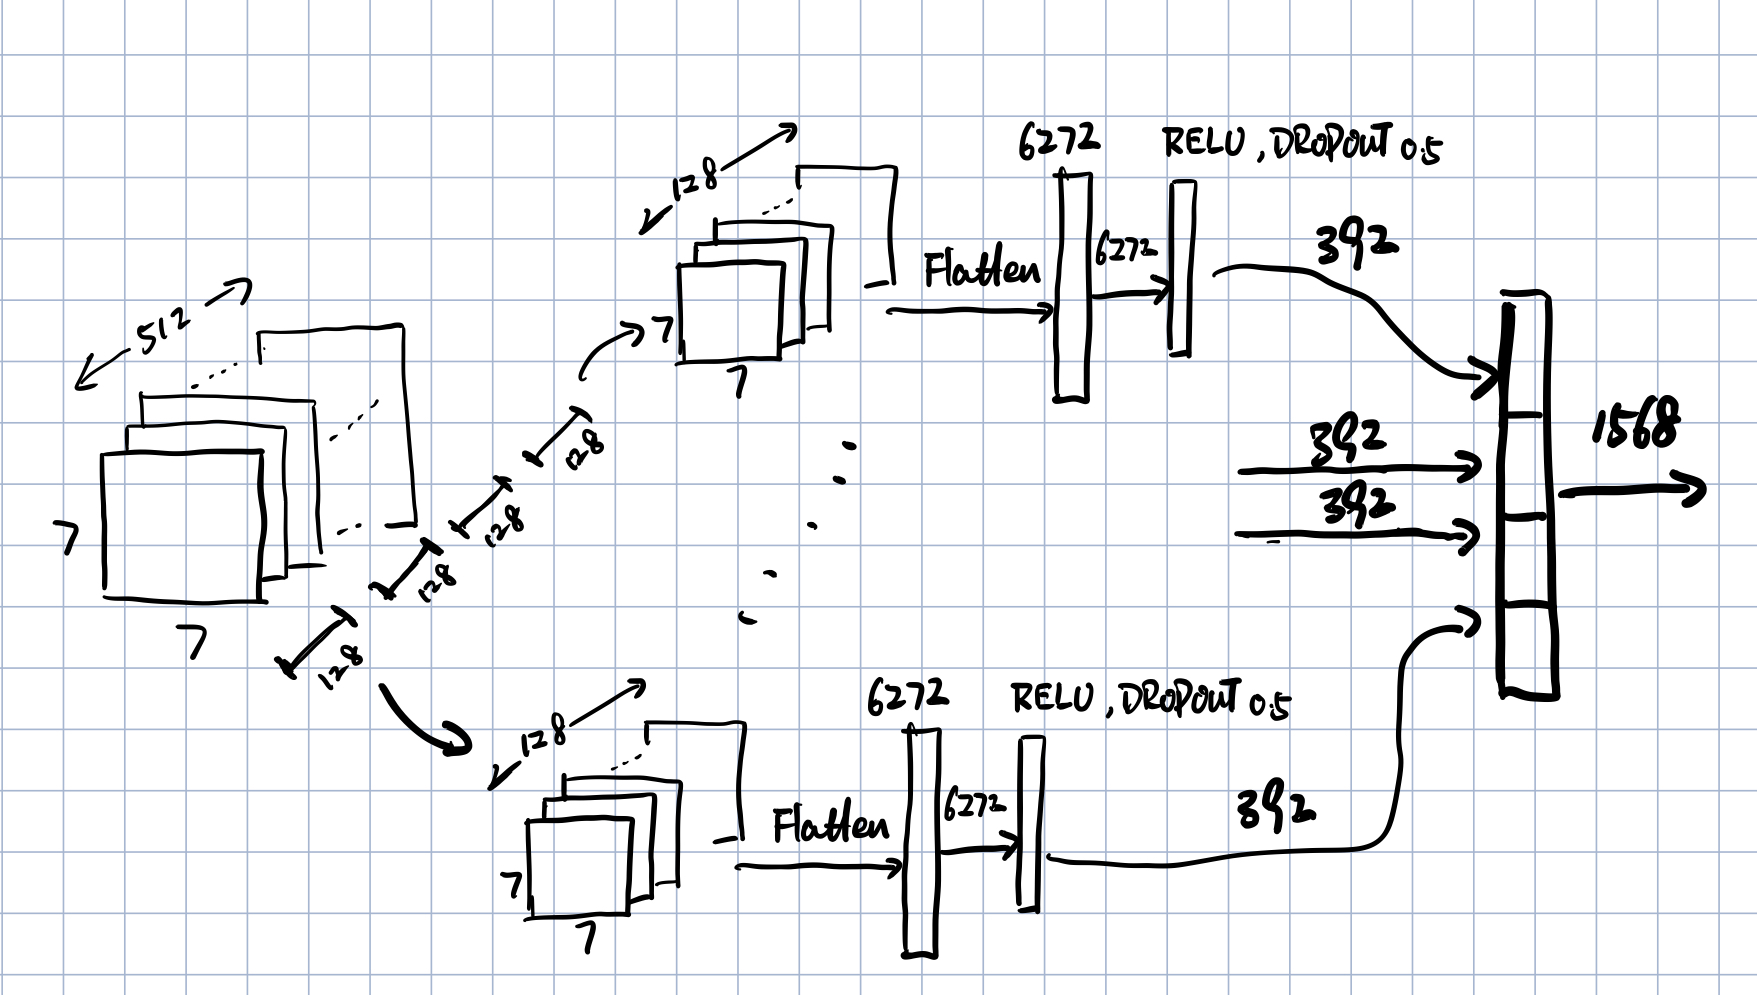 512
7
7
128
128
128
128
128
7
7
Flatten
6272
6272
RELU, DROPOUT 0.5
392
392
392
1568
128
7
7
Flatten
6272
6272
RELU, DROPOUT 0.5
392